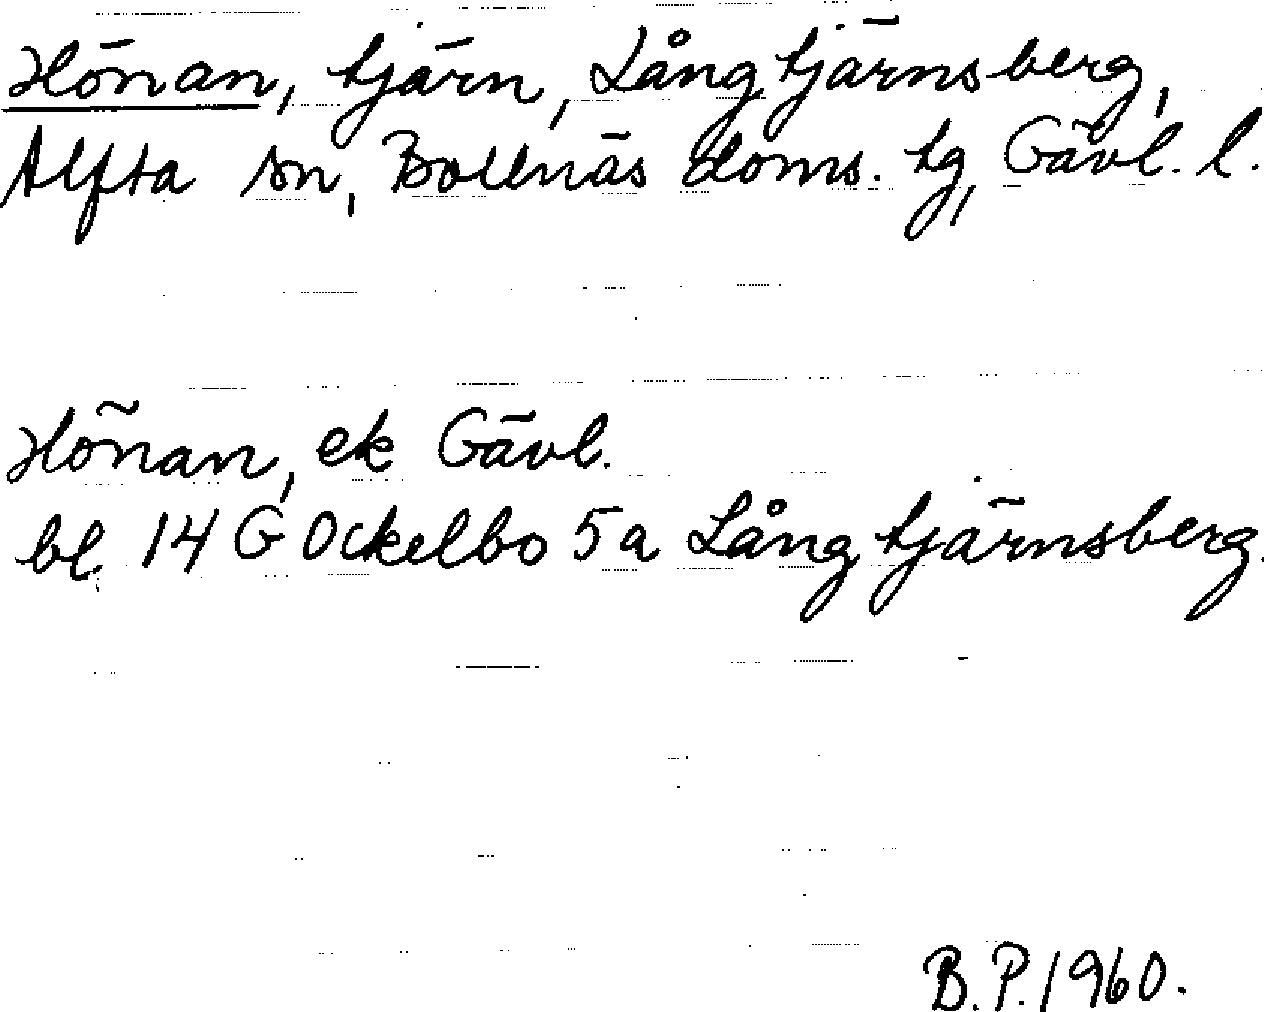 Hönan, tjärn, Långtjärnsberg,
Alfta sn, Bollnäs doms. tg, Gävl. l.
Hönan, ek Gävl.
bl. 14 G Ockelbo 5 a Långtjärnsberg.
B.P. 1960.